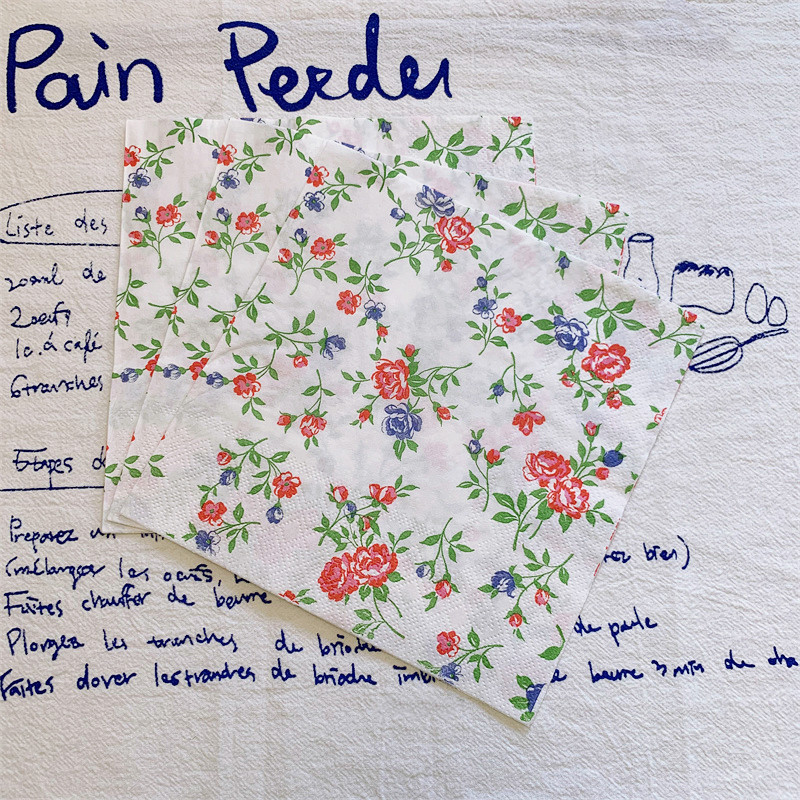 Pain Perdu
Liste des
200ml de
2 oeufs
1c. à café
6 tranches
Etapes d
Preparez un
(mélanger les oeufs,
tez bien)
Faites chauffer de beurre
Plongez les tranches de brioche
de poele
Faites dorer les tranches de brioche imbi
e beurre 3 min de cha